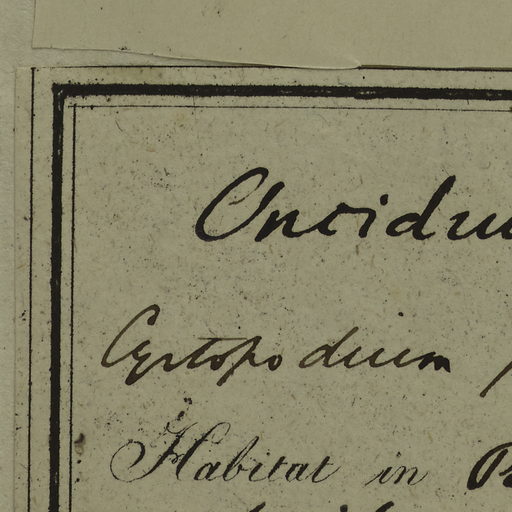 Oncidiu
Cyrtopodium
Habitat in